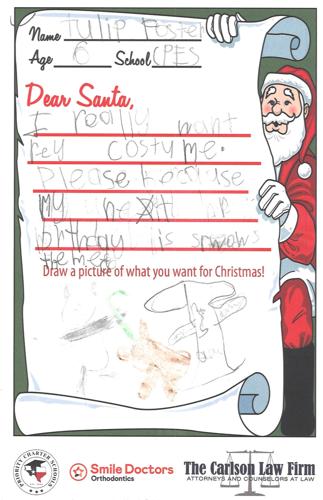 Name Tulip Foster
Age 6 School CPES
Dear Santa,
I really want
rey costyme.
Please because
my
birthday is
themed
Draw a picture of what you want for Christmas!
PRIORITY CHARTER SCHOOLS
Smile Doctors
Orthodontics
The Carlson Law Firm
ATTORNEYS AND COUNSELORS AT LAW